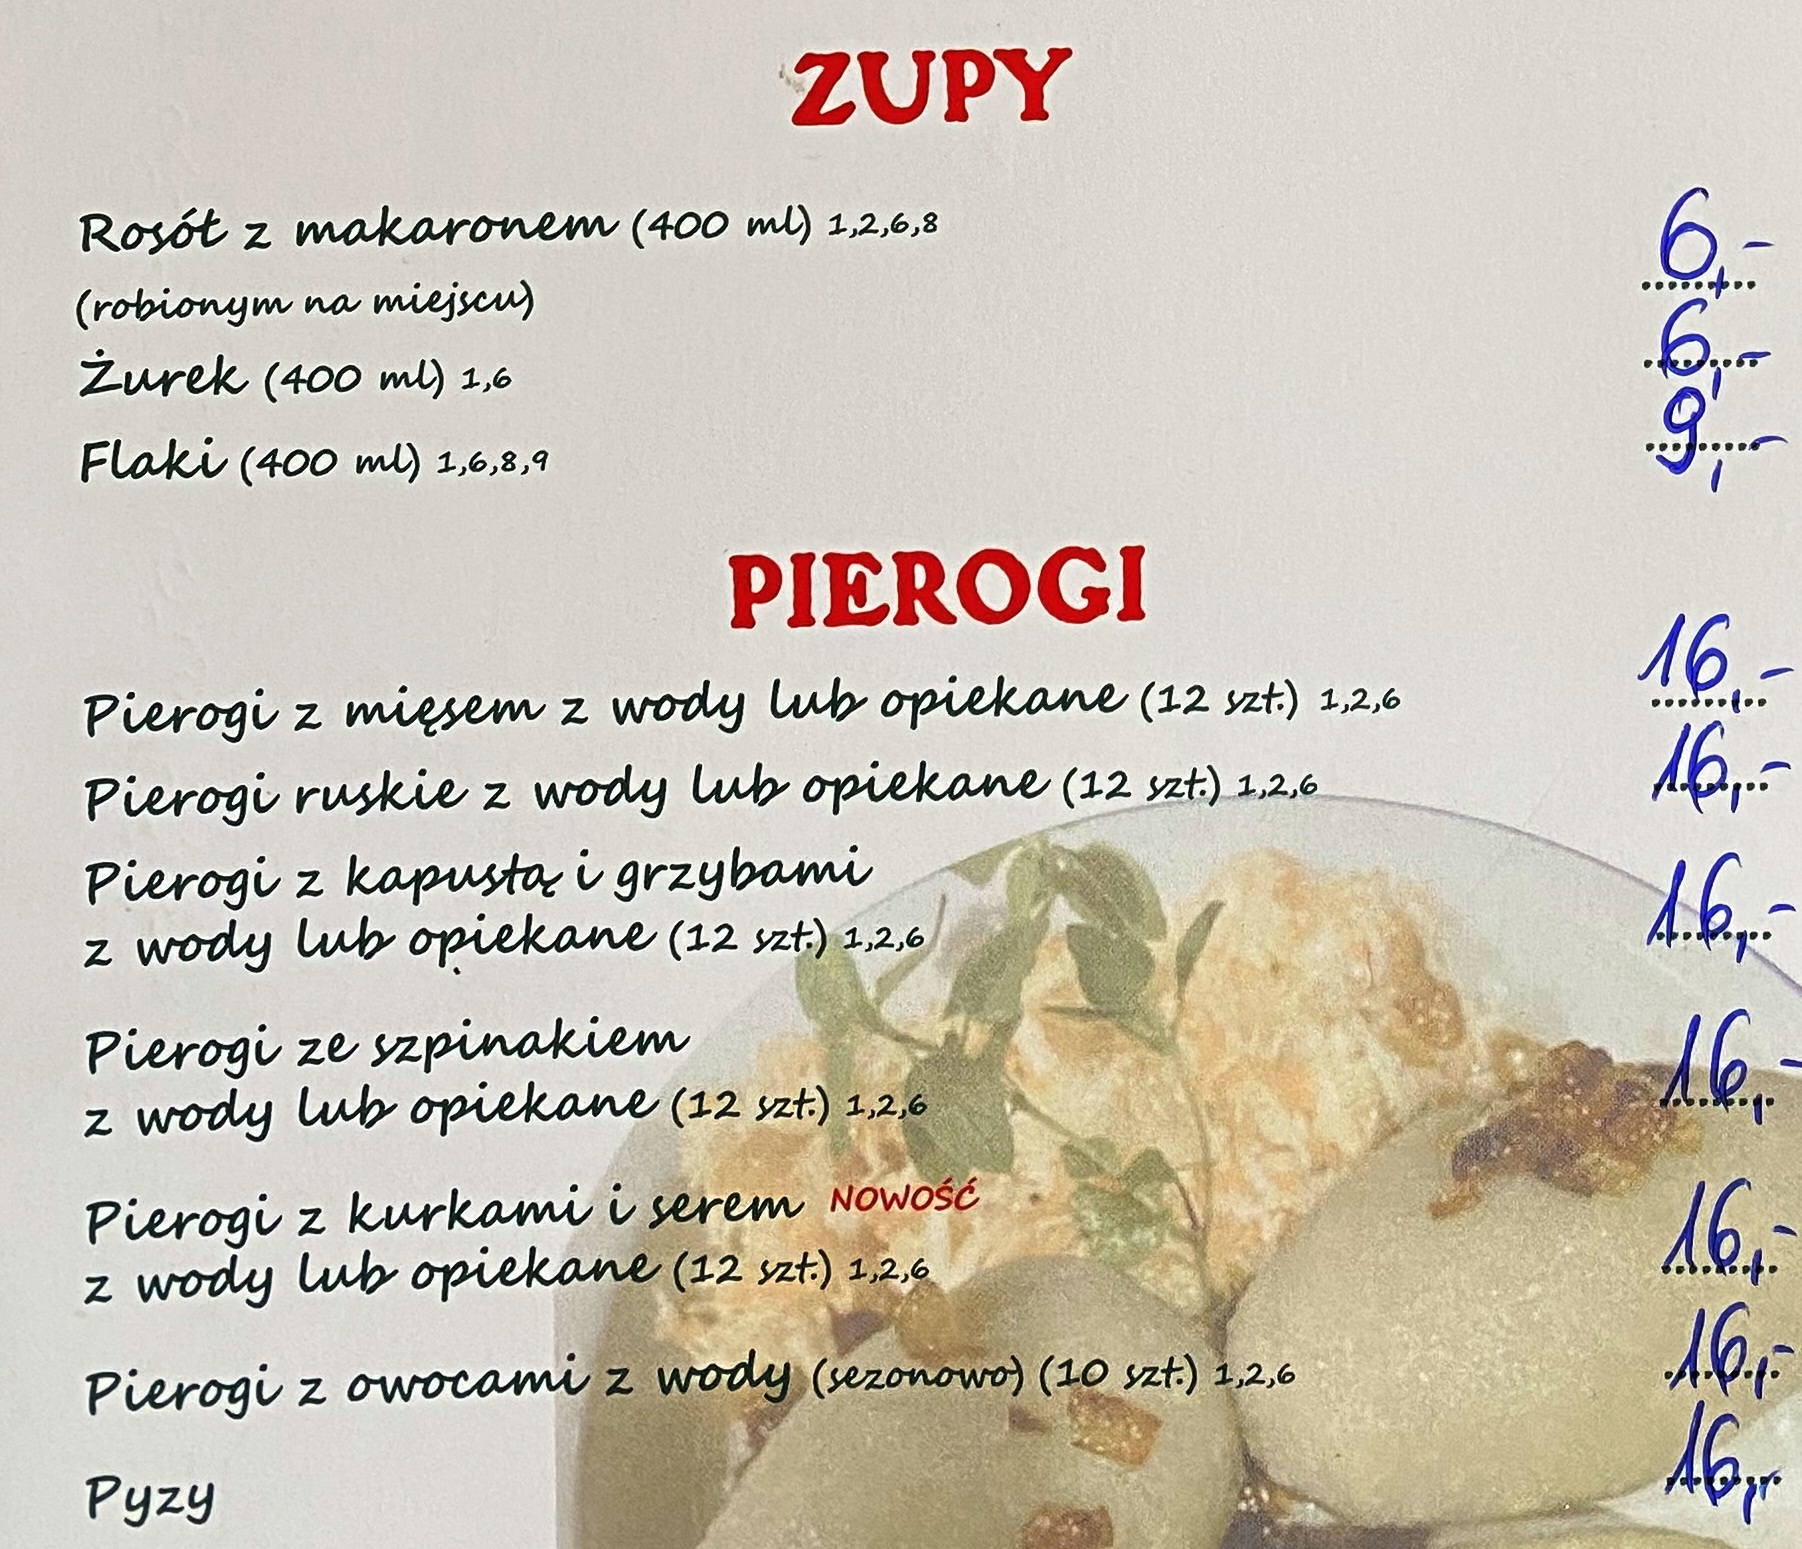 ZUPY
Rosół z makaronem (400 ml) 1,2,6,8 6,-
(robionym na miejscu)
Żurek (400 ml) 1,6 6,-
Flaki (400 ml) 1,6,8,9 9,-
PIEROGI
Pierogi z mięsem z wody lub opiekane (12 szt.) 1,2,6 16,-
Pierogi ruskie z wody lub opiekane (12 szt.) 1,2,6 16,-
Pierogi z kapustą i grzybami
z wody lub opiekane (12 szt.) 1,2,6 16,-
Pierogi ze szpinakiem
z wody lub opiekane (12 szt.) 1,2,6 16,-
Pierogi z kurkami i serem NOWOŚĆ
z wody lub opiekane (12 szt.) 1,2,6 16,-
Pierogi z owocami z wody (sezonowo) (10 szt.) 1,2,6 16,-
Pyzy 16,-